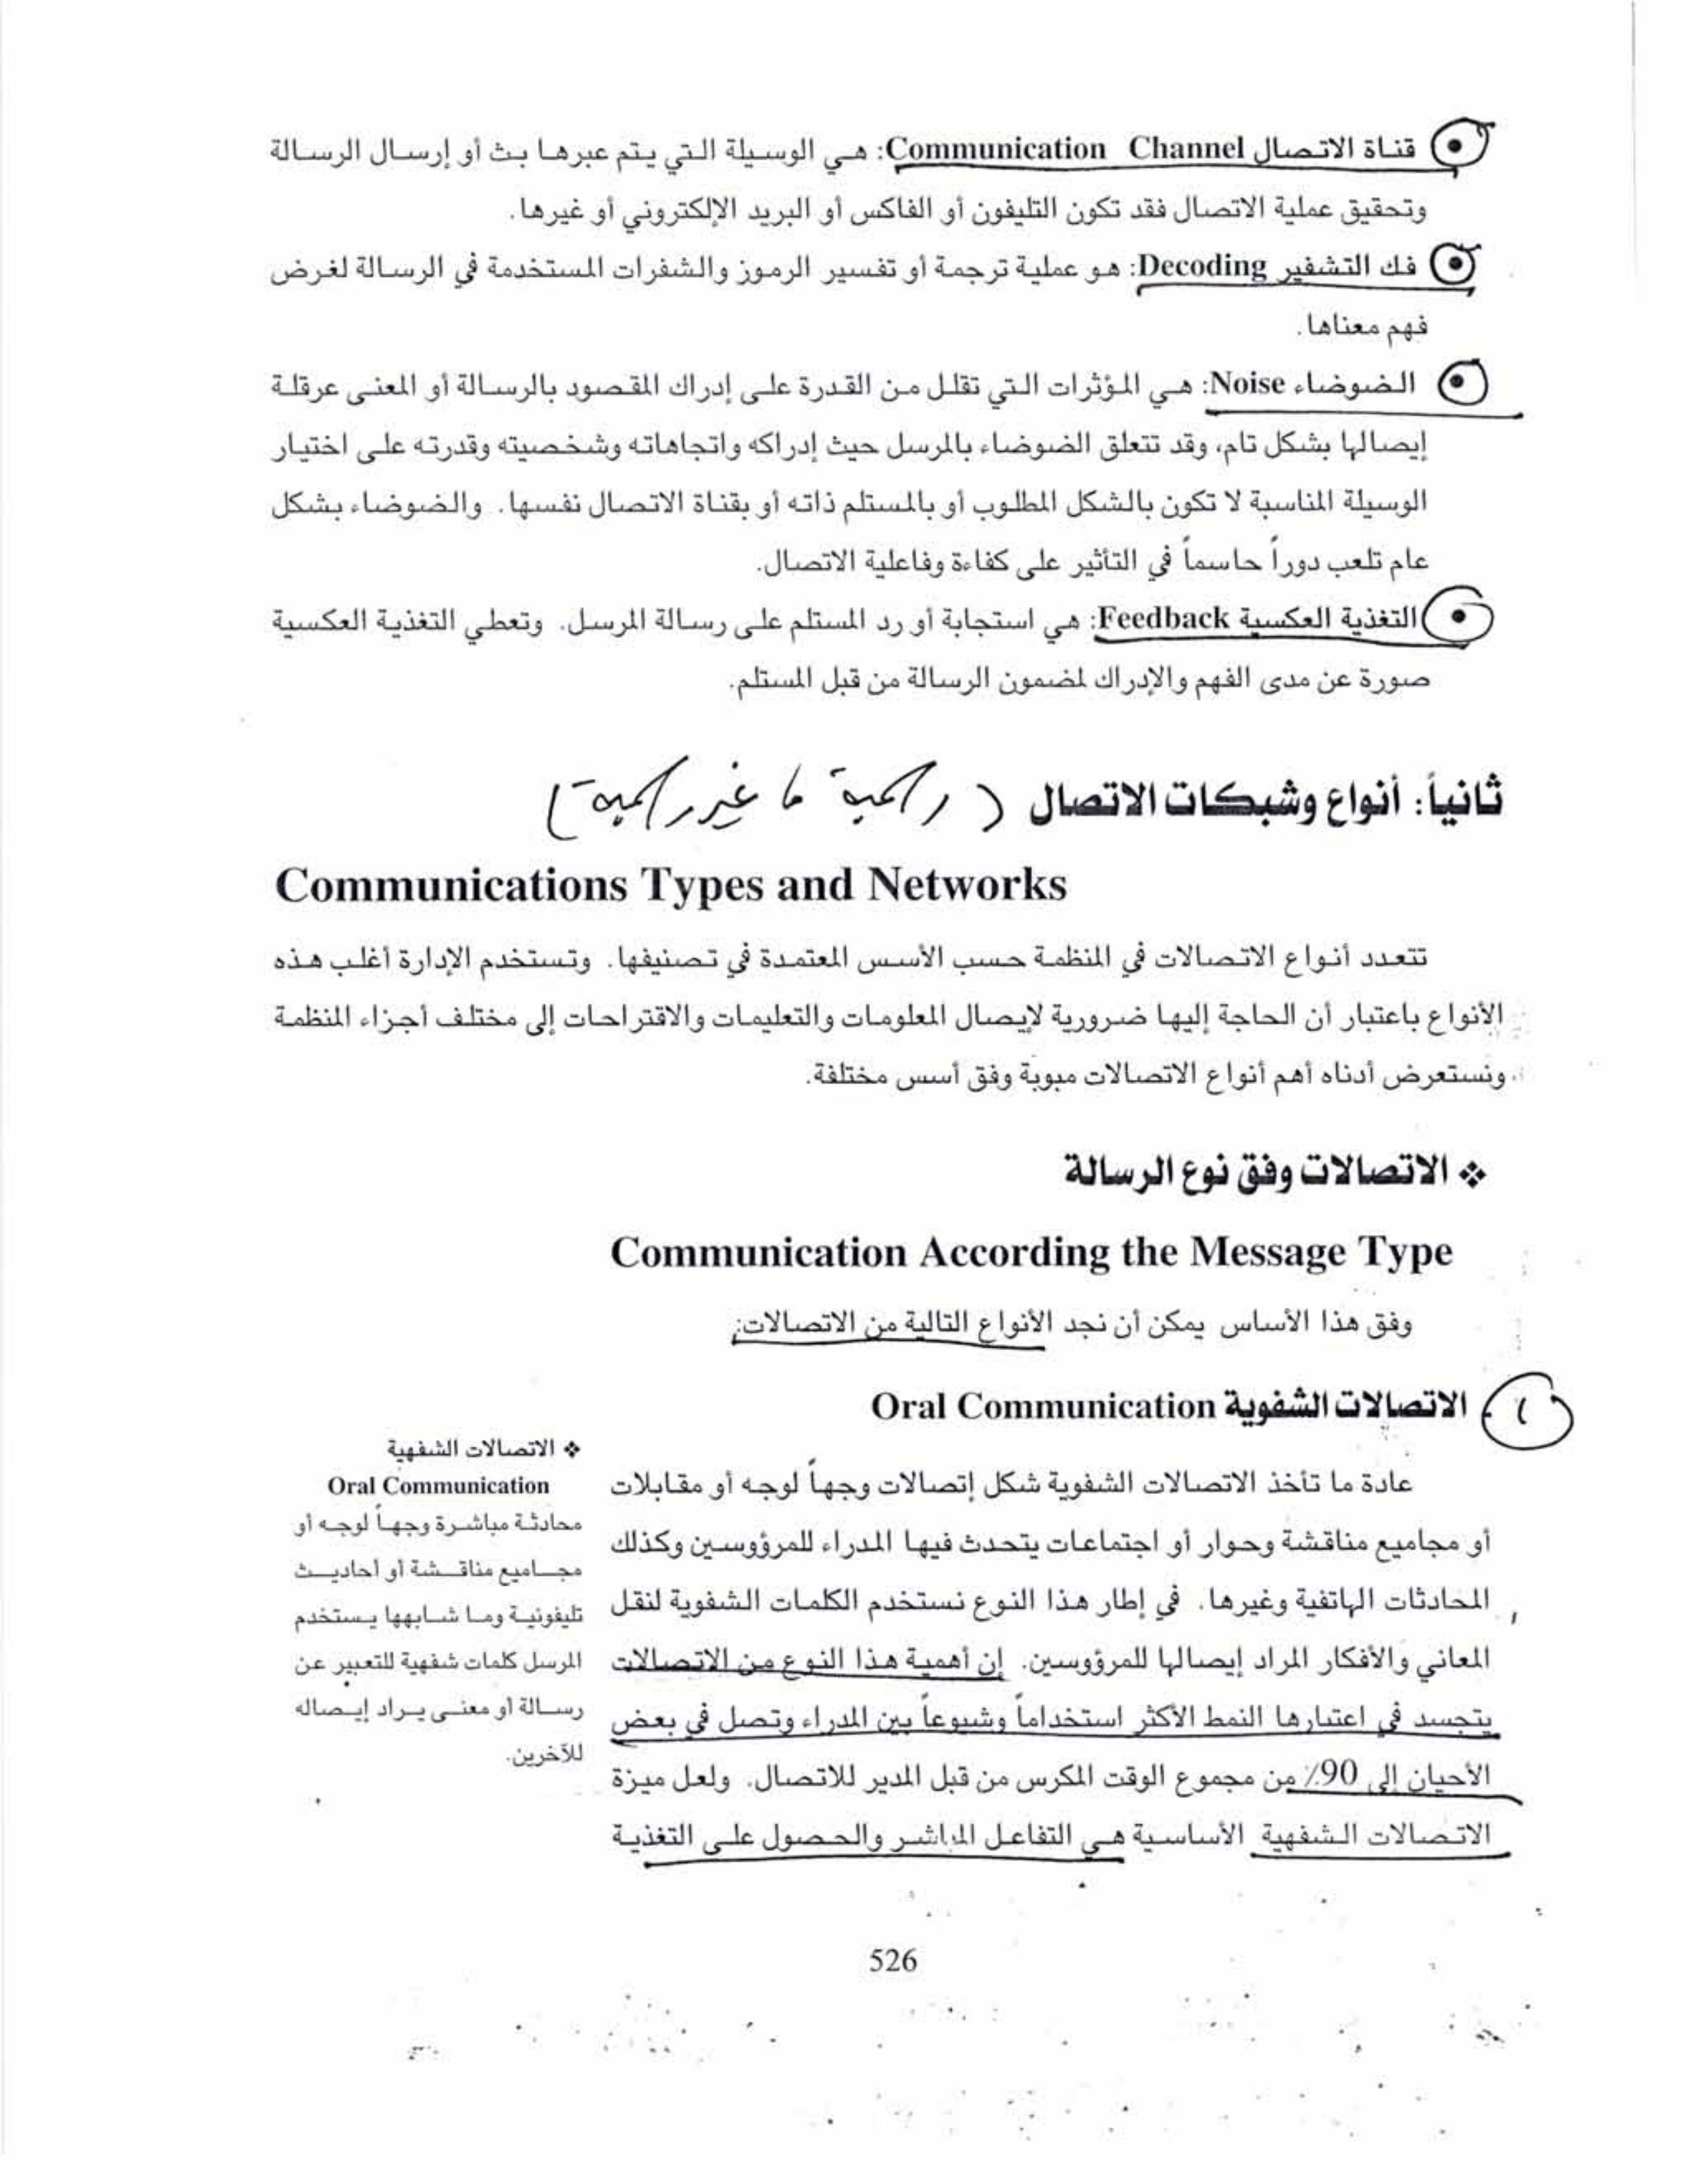 قناة الاتصال Communication Channel: هي الوسيلة التي يتم عبرها بث أو إرسال الرسالة
وتحقيق عملية الاتصال فقد تكون التليفون أو الفاكس أو البريد الإلكتروني أو غيرها.
فك التشفير Decoding: هو عملية ترجمة أو تفسير الرموز والشفرات المستخدمة في الرسالة لغرض
فهم معناها.
الضوضاء Noise: هي المؤثرات التي تقلل من القدرة على إدراك المقصود بالرسالة أو المعنى عرقلة
إيصالها بشكل تام، وقد تتعلق الضوضاء بالمرسل حيث إدراكه واتجاهاته وشخصيته وقدرته على اختيار
الوسيلة المناسبة لا تكون بالشكل المطلوب أو بالمستلم ذاته أو بقناة الاتصال نفسها. والضوضاء بشكل
عام تلعب دوراً حاسماً في التأثير على كفاءة وفاعلية الاتصال.
التغذية العكسية Feedback: هي استجابة أو رد المستلم على رسالة المرسل. وتعطي التغذية العكسية
صورة عن مدى الفهم والإدراك لمضمون الرسالة من قبل المستلم.
ثانياً: أنواع وشبكات الاتصال
Communications Types and Networks
تتعدد أنواع الاتصالات في المنظمة حسب الأسس المعتمدة في تصنيفها. وتستخدم الإدارة أغلب هذه
الأنواع باعتبار أن الحاجة إليها ضرورية لإيصال المعلومات والتعليمات والاقتراحات إلى مختلف أجزاء المنظمة
ونستعرض أدناه أهم أنواع الاتصالات مبوبة وفق أسس مختلفة.
❖ الاتصالات وفق نوع الرسالة
Communication According the Message Type
وفق هذا الأساس يمكن أن نجد الأنواع التالية من الاتصالات:
الاتصالات الشفوية Oral Communication
عادة ما تأخذ الاتصالات الشفوية شكل إتصالات وجهاً لوجه أو مقابلات
أو مجاميع مناقشة وحوار أو اجتماعات يتحدث فيها المدراء للمرؤوسين وكذلك
المحادثات الهاتفية وغيرها. في إطار هذا النوع نستخدم الكلمات الشفوية لنقل
المعاني والأفكار المراد إيصالها للمرؤوسين. إن أهمية هذا النوع من الاتصالات
يتجسد في اعتبارها النمط الأكثر استخداماً وشيوعاً بين المدراء وتصل في بعض
الأحيان إلى 90٪ من مجموع الوقت المكرس من قبل المدير للاتصال. ولعل ميزة
الاتصالات الشفهية الأساسية هي التفاعل المباشر والحصول على التغذية
❖ الاتصالات الشفهية
Oral Communication
محادثة مباشرة وجهاً لوجه أو
مجاميع مناقشة أو أحاديث
تليفونية وما شابهها يستخدم
المرسل كلمات شفهية للتعبير عن
رسالة أو معنى يراد إيصاله
للآخرين.
526